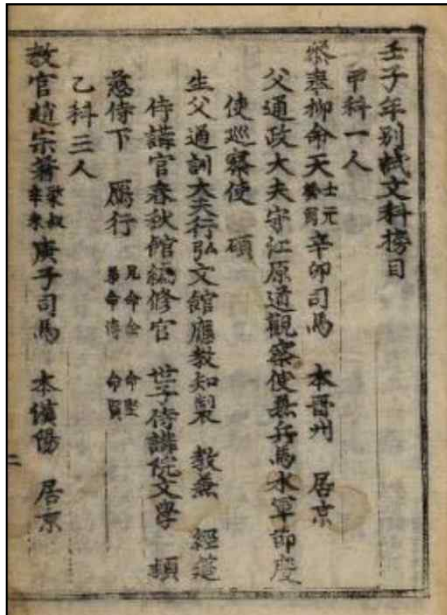 壬子年別試文科榜目
甲科一人
參奉柳命天 士元 癸酉 辛卯司馬 本晋州 居京
父通政大夫守江原道觀察使兼兵馬水軍節度
使巡察使 碩
生父通訓大夫行弘文館應教知製 教兼 經筵
侍講官春秋館編修官 世子侍講院文學 穎
慈侍下 鴈行 兄命全 命堅 弟命 命賢
乙科三人
教官趙宗著 叔 辛未 庚子司馬 本漢陽 居京
二